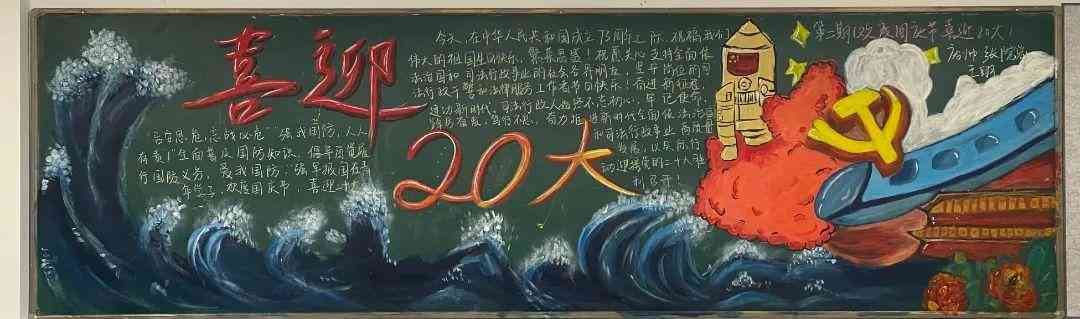 喜迎
20大
今天,在中华人民共和国成立73周年之际,祝福我们
伟大的祖国生日快乐,繁荣昌盛!祝愿关心支持全面依
法治国和司法行政事业的社会各界朋友,坚守岗位的司
法行政干警和法律服务工作者节日快乐!奋进新征程,
建功新时代,司法行政人始终不忘初心,牢记使命,
踔厉奋发,笃行不怠,奋力推进新时代全面依法治国
和司法行政事业高质量
发展,以实际行
动迎接党的二十大胜
利召开!
"居安思危,忘战必危"强我国防,人人
有责!全面普及国防知识,倡导质量
行国防义务,爱我国防,强军报国在
欢度国庆节,喜迎二十大
第二期《欢度国庆节喜迎20大!